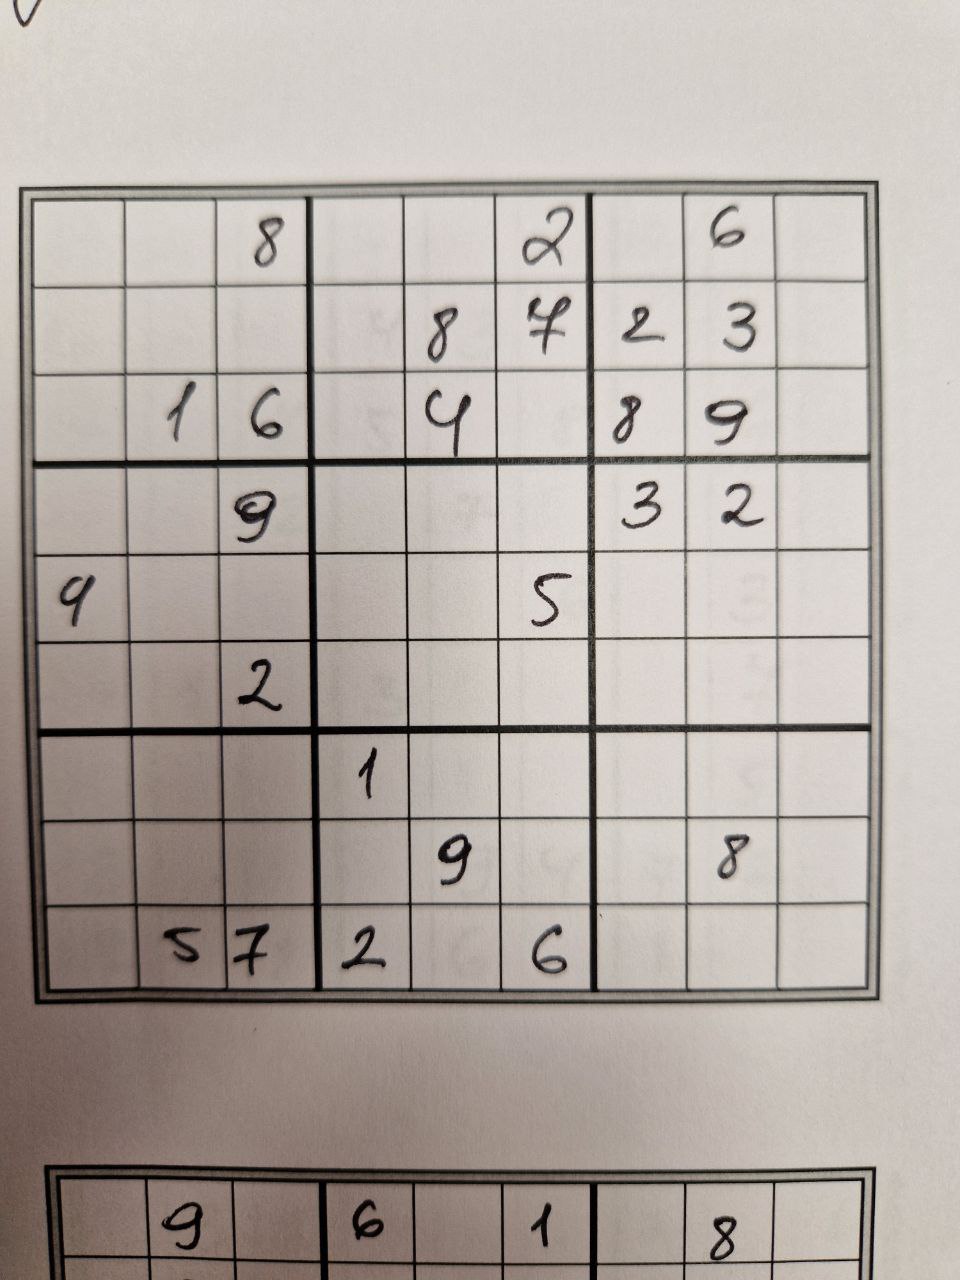 8 2 6
8 7 2 3
1 6 4 8 9
9 3 2
4 5
2
1
9 8
5 7 2 6
9 6 1 8